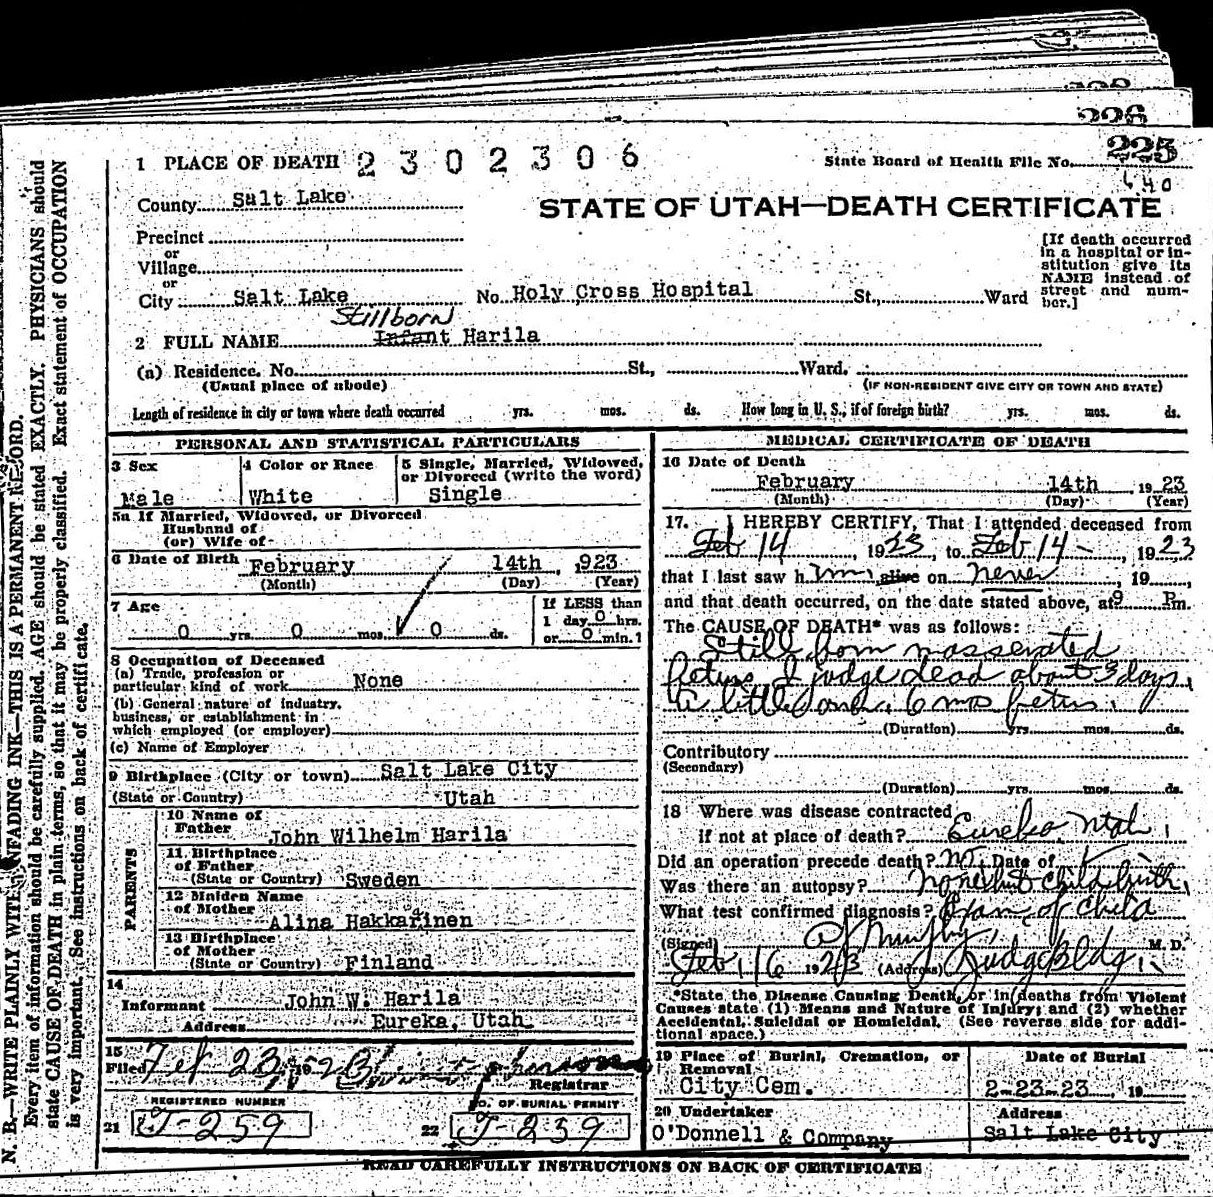 228
226
225
1 PLACE OF DEATH 2302306 State Board of Health File No.
640
County Salt Lake
STATE OF UTAH—DEATH CERTIFICATE
Precinct
or
Village
or
City Salt Lake No. Holy Cross Hospital St., Ward
[If death occurred
in a hospital or in-
stitution give its
NAME instead of
street and num-
ber.]
Stillborn
2 FULL NAME Infant Harila
(a) Residence. No. St., Ward.
(Usual place of abode) (IF NON-RESIDENT GIVE CITY OR TOWN AND STATE)
Length of residence in city or town where death occurred yrs. mos. ds. How long in U. S., if of foreign birth? yrs. mos. ds.
PERSONAL AND STATISTICAL PARTICULARS
3 Sex 4 Color or Race 5 Single, Married, Widowed,
or Divorced (write the word)
Male White Single
5a If Married, Widowed, or Divorced
Husband of
(or) Wife of
6 Date of Birth February 14th, 923
(Month) (Day) (Year)
7 Age If LESS than
1 day 0 hrs.
0 yrs. 0 mos. 0 ds. or 0 min.
8 Occupation of Deceased
(a) Trade, profession or
particular kind of work None
(b) General nature of industry,
business, or establishment in
which employed (or employer)
(c) Name of Employer
9 Birthplace (City or town) Salt Lake City
(State or Country) Utah
PARENTS
10 Name of
Father John Wilhelm Harila
11 Birthplace
of Father
(State or Country) Sweden
12 Maiden Name
of Mother Alina Hakkarinen
13 Birthplace
of Mother
(State or Country) Finland
14
Informant John W. Harila
Address Eureka, Utah
15
Filed Feb 23, 1923
Registrar
REGISTERED NUMBER NO. OF BURIAL PERMIT
21 J-259 22 J-239
MEDICAL CERTIFICATE OF DEATH
16 Date of Death
February 14th 1923
(Month) (Day) (Year)
17. I HEREBY CERTIFY, That I attended deceased from
Feb 14, 1923, to Feb 14, 1923
that I last saw him alive on never, 19
and that death occurred, on the date stated above, at 9 P.m.
The CAUSE OF DEATH* was as follows:
Still born masserated
fetus I judge dead about 3 days,
6 mos fetus.
(Duration) yrs. mos. ds.
Contributory
(Secondary)
(Duration) yrs. mos. ds.
18 Where was disease contracted
if not at place of death? Eureka Utah
Did an operation precede death? No, Date of
Was there an autopsy? None but child birth,
What test confirmed diagnosis? Exam. of child
(Signed) Murphy, M. D.
Feb 16 1923 (Address) Judge Bldg.
*State the Disease Causing Death, or in deaths from Violent
Causes state (1) Means and Nature of Injury; and (2) whether
Accidental, Suicidal or Homicidal. (See reverse side for addi-
tional space.)
19 Place of Burial, Cremation, or
Removal Date of Burial
City Cem. 2-23-23 19
20 Undertaker Address
O'Donnell & Company Salt Lake City
READ CAREFULLY INSTRUCTIONS ON BACK OF CERTIFICATE
N. B.—WRITE PLAINLY WITH UNFADING INK—THIS IS A PERMANENT RECORD.
Every item of information should be carefully supplied. AGE should be stated EXACTLY. PHYSICIANS should
state CAUSE OF DEATH in plain terms, so that it may be properly classified. Exact statement of OCCUPATION
is very important. (See instructions on back of certificate.